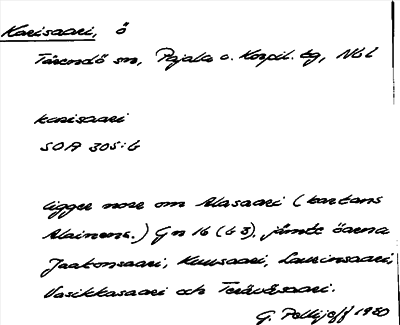 Karisaari, ö
Tärendö sn, Pajala o. Korpil. tg, Nbl
karisaari
SOA 305:6
ligger norr om Alasaari (kartans
Alainens.) Gn 16 (63), jämte öarna
Jaakonsaari, Kuusaari, Laurinsaari,
Vasikkasaari och Teräväsaari.
G. Pellijeff 1980